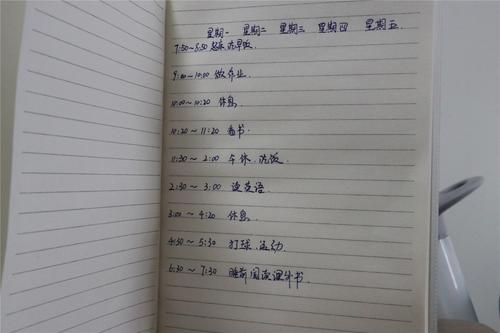 星期一 星期二 星期三 星期四 星期五
7:50~8:50 起床 洗早饭
9:00~10:00 做作业
10:00~10:20 休息
10:20~11:20 看书
11:30~2:00 午休 洗饭
2:30~3:00 读英语
3:00~4:20 休息
4:30~5:30 打球 运动
6:30~7:30 睡前阅读课外书